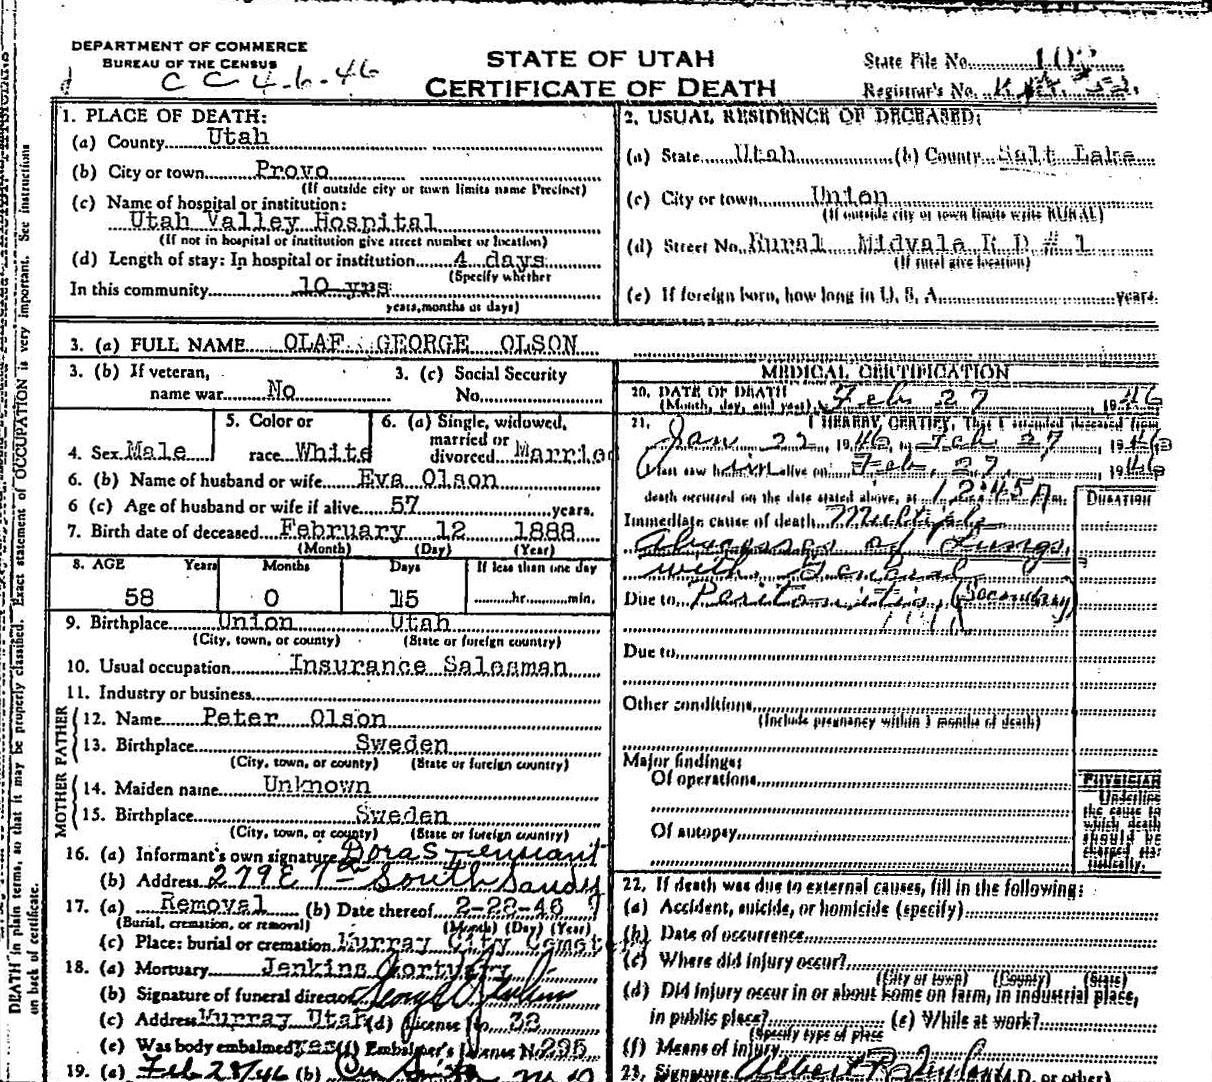 DEPARTMENT OF COMMERCE
BUREAU OF THE CENSUS
C C 4-6-46
STATE OF UTAH
CERTIFICATE OF DEATH
State File No.
Registrar's No.
1. PLACE OF DEATH:
(a) County Utah
(b) City or town Provo
(If outside city or town limits name Precinct)
(c) Name of hospital or institution:
Utah Valley Hospital
(If not in hospital or institution give street number or location)
(d) Length of stay: In hospital or institution 4 days
(Specify whether
In this community 10 yrs
years, months or days)
2. USUAL RESIDENCE OF DECEASED:
(a) State Utah (b) County Salt Lake
(c) City or town Union
(If outside city or town limits write RURAL)
(d) Street No. Rural Midvale R D # 1
(If rural give location)
(e) If foreign born, how long in U. S. A. years.
3. (a) FULL NAME OLAF GEORGE OLSON
3. (b) If veteran,
name war No
3. (c) Social Security
No.
4. Sex Male
5. Color or
race White
6. (a) Single, widowed,
married or
divorced Married
6. (b) Name of husband or wife Eva Olson
6 (c) Age of husband or wife if alive 57 years.
7. Birth date of deceased February 12 1888
(Month) (Day) (Year)
8. AGE Years Months Days If less than one day
58 0 15 hr. min.
9. Birthplace Union Utah
(City, town, or county) (State or foreign country)
10. Usual occupation Insurance Salesman
11. Industry or business
FATHER
12. Name Peter Olson
13. Birthplace Sweden
(City, town, or county) (State or foreign country)
MOTHER
14. Maiden name Unknown
15. Birthplace Sweden
(City, town, or county) (State or foreign country)
16. (a) Informant's own signature Dora S
(b) Address 279 E 7th South Sandy
17. (a) Removal (b) Date thereof 2-28-46
(Burial, cremation, or removal) (Month) (Day) (Year)
(c) Place: burial or cremation Murray City Cemetery
18. (a) Mortuary Jenkins Mortuary
(b) Signature of funeral director
(c) Address Murray Utah (d) License No. 32
(e) Was body embalmed yes (f) Embalmer's License No. 295
19. (a) Feb 28/46 (b)
MEDICAL CERTIFICATION
20. DATE OF DEATH
(Month, day, and year) Feb 27 1946
21. I HEREBY CERTIFY, That I attended deceased from
Jan 22 1946 to Feb 27 1946
I last saw him alive on Feb. 27, 1946
death occurred on the date stated above, at 12:45 A m.
DURATION
Immediate cause of death Multiple
Abscesses of Lungs,
with General
Due to Peritonitis (Secondary)
Due to
Other conditions
(Include pregnancy within 3 months of death)
Major findings:
Of operations
Of autopsy
PHYSICIAN
Underline
the cause to
which death
should be
charged sta-
tistically.
22. If death was due to external causes, fill in the following:
(a) Accident, suicide, or homicide (specify)
(b) Date of occurrence
(c) Where did injury occur?
(City or town) (County) (State)
(d) Did injury occur in or about home on farm, in industrial place,
in public place? (e) While at work?
(Specify type of place
(f) Means of injury
23. Signature Albert (M.D. or other)
DEATH in plain terms, so that it may be properly classified. Exact statement of OCCUPATION is very important. See instructions
on back of certificate.